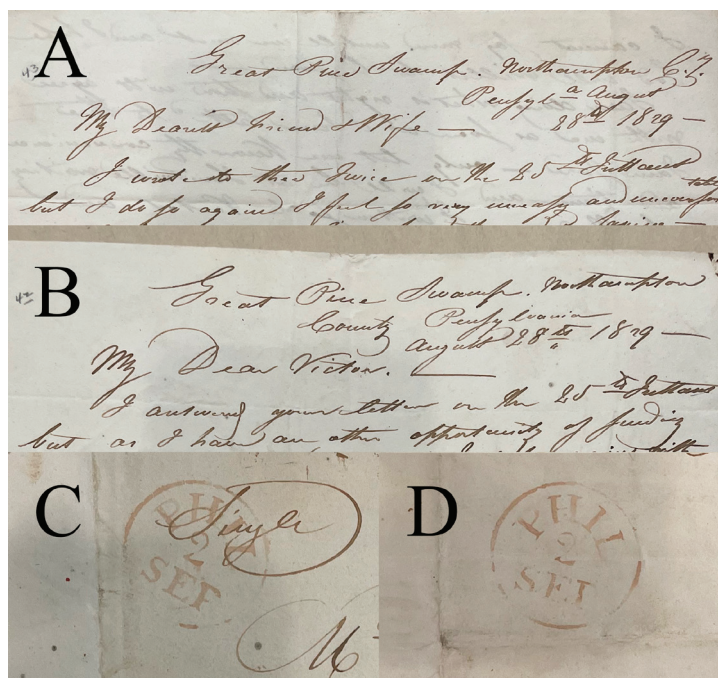 A
43
Great Pine Swamp. Northampton C.ty
Pensylv.a August
28th 1829 —
My Dearest Friend & Wife —
I wrote to thee Twice on the 25th Instant
but I do so again I feel so very uneasy and uncomfor
table
B
42
Great Pine Swamp. Northampton
County Pensylvania
August 28th 1829 —
My Dear Victor. —
I answered your letter on the 25th Instant
but as I have an other opportunity of sending
with
C
PHIL
Single
2
SEP
M
D
PHIL
2
SEP